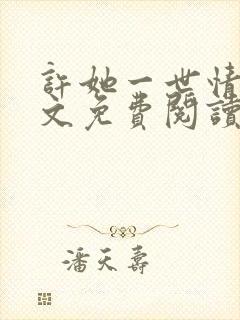 許她一世情
文免費閱讀
潘天壽